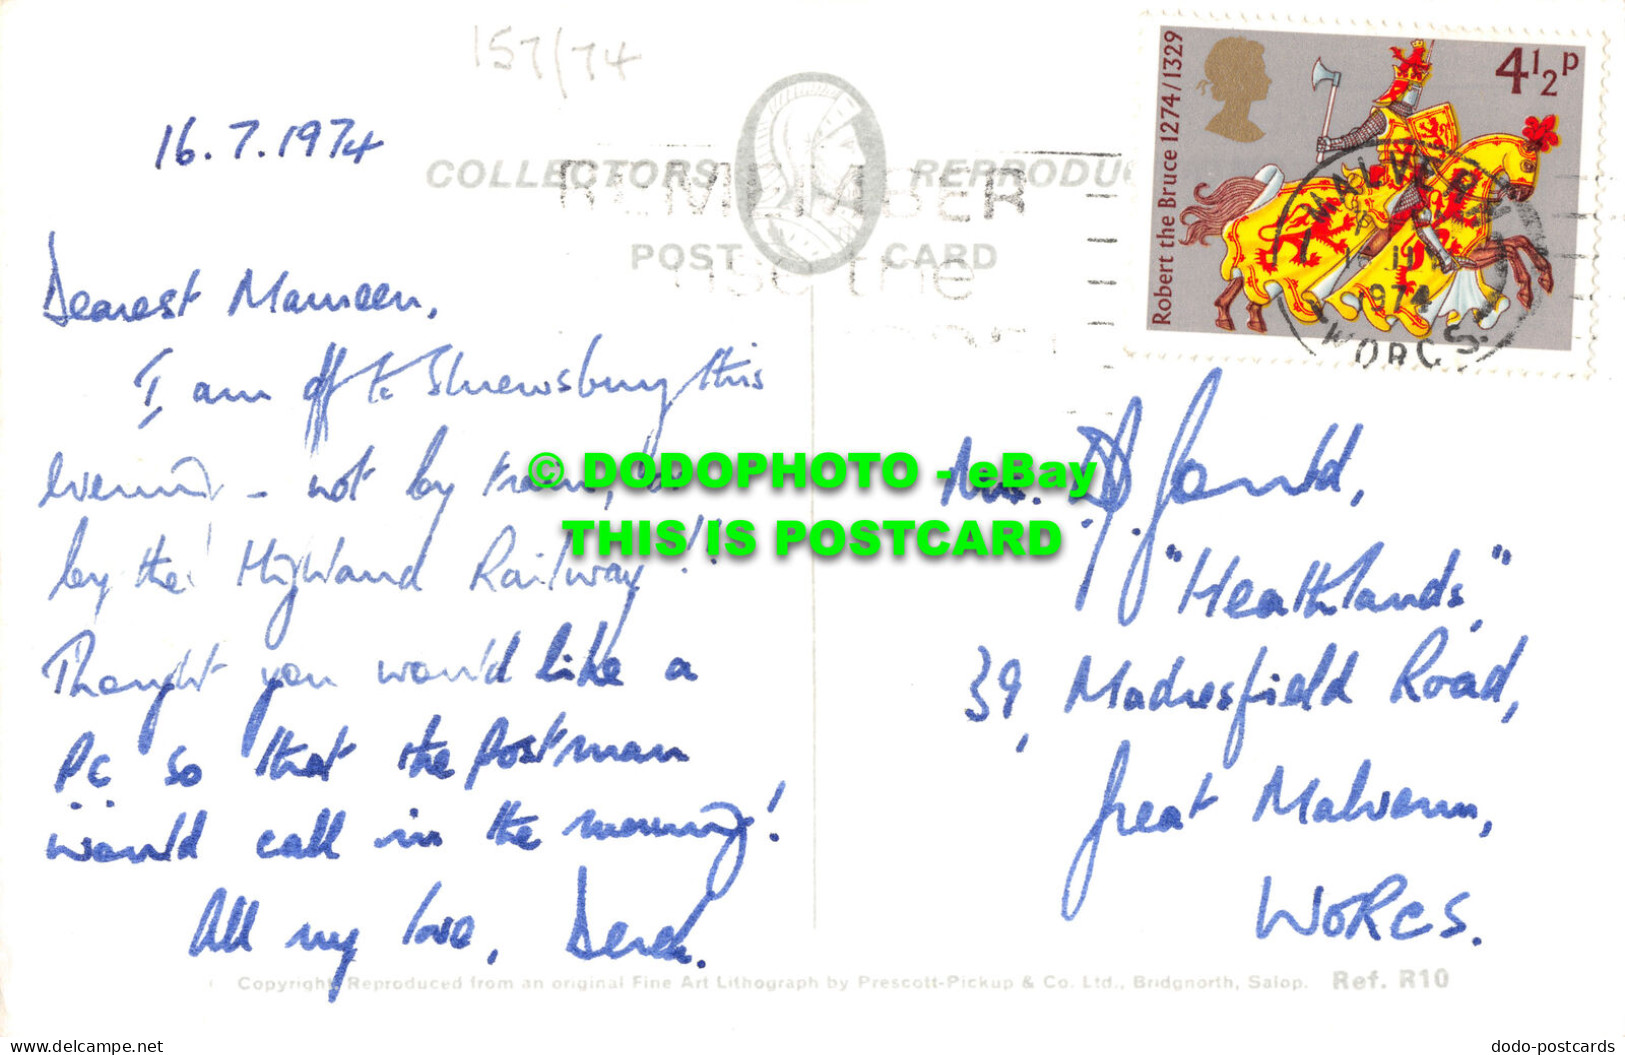 157/74
16.7.1974
COLLECTORS REPRODU
POST CARD
REMEMBER
use the
Robert the Bruce 1274/1329
4½P
MALVERN
1974
WORCS.
Dearest Maureen,
I am off to Shrewsbury this
evening - not by train, but
by the Highland Railway!!
Thought you would like a
PC so that the postman
would call in the morning!
All my love, Derek.
Mrs. D. J. Gould,
"Heathlands,"
39, Madresfield Road,
Great Malvern,
WORCS.
© DODOPHOTO - eBay
THIS IS POSTCARD
Copyright Reproduced from an original Fine Art Lithograph by Prescott-Pickup & Co. Ltd., Bridgnorth, Salop. Ref. R10
delcampe.net
dodo-postcards